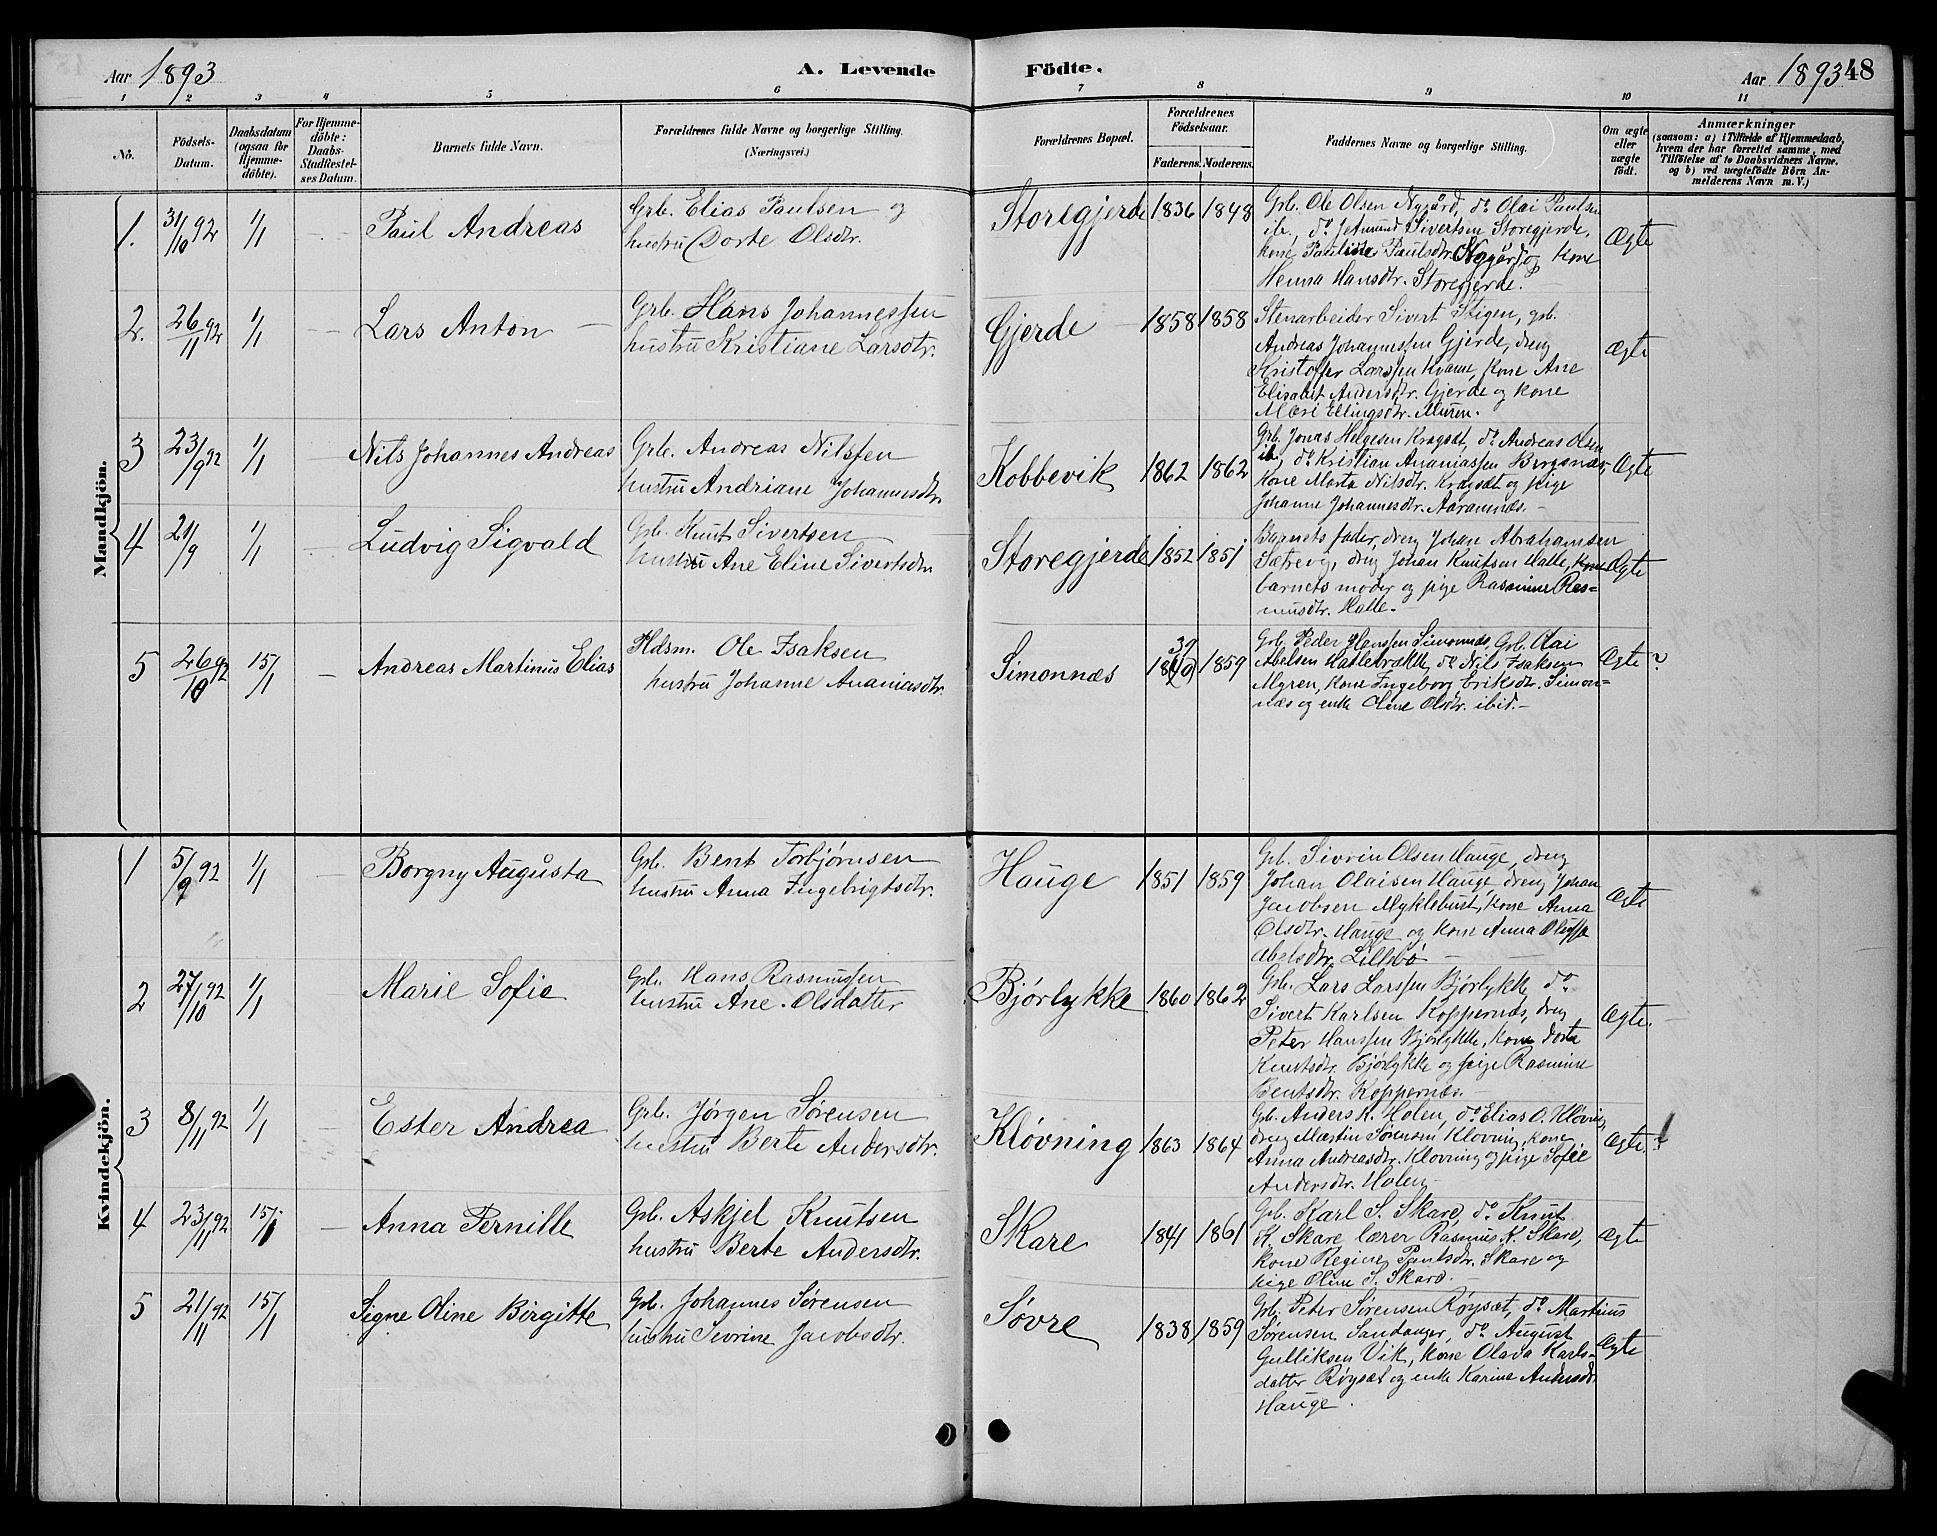 Aar 1893
A. Levende Födte.
Aar 1893 48
1 2 3 4 5 6 7 8 9 10 11
No.
Födsels-Datum.
Daabsdatum (ogsaa for Hjemme-döbte).
For Hjemme-döbte: Daabs-Stadfæstel-ses Datum.
Barnets fulde Navn.
Forældrenes fulde Navne og borgerlige Stilling.
(Næringsvei.)
Forældrenes Bopæl.
Forældrenes Födselsaar.
Faderens. Moderens.
Faddernes Navne og borgerlige Stilling.
Om ægte eller uægte födt.
Anmærkninger
(saasom: a) i Tilfælde af Hjemmedaab,
hvem der har forrettet samme, med
Tilföielse af to Daabsvidners Navne,
og b) ved uægtefödte Börn An-
melderens Navn m. V.)
Mandkjön.
1. 31/10 92 1/1 Paul Andreas
Grb. Elias Paulsen og
hustru Dorte Olsdtr.
Storegjerde 1836 1848
Grb. Ole Olsen Nygård, do Olai Paulsen
ib., do Jetmund Sivertsen Storegjerde,
kone Pauline Paulsdtr. Nygård og kone
Henna Hansdtr. Storegjerde.
Ægte
2. 26/11 92 1/1 Lars Anton
Grb. Hans Johannessen
hustru Kristiane Larsdtr.
Gjerde 1858 1858
Stenarbeider Sivert Stigen, grb.
Andreas Johannessen Gjerde, dreng
Kristoffer Larssen Kvame, kone Ane
Elisabet Andersdtr. Gjerde og kone
Mari Ellingsdtr. Muren.
Ægte
3 23/9 92 1/1 Nils Johannes Andreas
Grb. Andreas Nilssen
hustru Andriane Johannesdtr.
Kobbevik 1862 1862
Grb. Jonas Helgesen Kragsæt, do Andreas Olsen
ib., do Kristian Ananiassen Bergsnæs,
kone Marta Nilsdtr. Kragsæt og pige
Johanne Johannesdtr. Aaramnæs.
Ægte
4 21/9 1/1 Ludvig Sigvald
Grb. Knut Sivertsen
hustru Ane Eline Sivertsdtr.
Storegjerde 1852 1851
Barnets fader, dreng Johan Abrahamsen
Sætrevig, dreng Johan Knutsen Hatle, kone
barnets moder og pige Rasmine Ras-
musdtr. Hatle.
Ægte
5 26/10 92 15/1 Andreas Martinus Elias
Hdsm. Ole Isaksen
hustru Johanne Ananiasdtr.
Simonnæs 39 1859
Grb. Peder Hanssen Simonnæs, Grb. Olai
Abelsen Hatlebrække, do Nils Isaksen
Myren, kone Ingeborg Eriksdtr. Simon-
næs og enke Oline Olsdtr. ibid.
Ægte ?
Kvindekjön.
1 5/9 92 1/1 Borgny Augusta
Grb. Bent Torbjørnsen
hustru Anna Ingebrigtsdtr.
Hauge 1851 1859
Grb. Sivrin Olsen Hauge, dreng
Johan Olaisen Hauge, dreng Johan
Jacobsen Myklebust, kone Anna
Olsdtr. Hauge og kone Anna
Abelsdtr. Lillebø
Ægte
2 27/10 92 1/1 Marie Sofie
Grb. Hans Rasmussen
hustru Ane Olsdatter
Bjørlykke 1860 1862
Grb. Lars Larssen Bjørlykke do
Sivert Karlsen Koppernæs, dreng
Peter Hanssen Bjørlykke, kone Dorte
Knutsdtr. Bjørlykke og pige Rasmine
Bentsdtr. Koppernæs.
Ægte.
3 8/11 92 1/1 Ester Andrea
Grb. Jørgen Sørensen
hustru Berte Andersdtr.
Kløvning 1863 1864
Grb. Anders K. Holen, do Elias O. Kløvning
dreng Martin Sørensen Kløvning, kone
Anna Andreasdtr. Kløvning og pige Sofie
Andersdtr. Holen
Ægte. ?
4 23/11 92 15/1 Anna Pernille
Grb. Askjel Knutsen
hustru Berte Andersdtr.
Skare 1841 1861
Grb. Karl S. Skare, do Knut
K. Skare lærer Rasmus K. Skare,
kone Regine Paulsdtr. Skare og
pige Oline S. Skare.
Ægte
5 21/11 92 15/1 Signe Oline Birgitte
Grb. Johannes Sørensen
hustru Sevrine Jacobsdtr.
Søvre 1838 1859
Grb. Peter Sørensen Røysæt, do Martinus
Sørensen Sandanger, do August
Gulliksen Vik, kone Olava Karls-
datter Røysæt og enke Karine Andersdtr.
Hauge.
Ægte